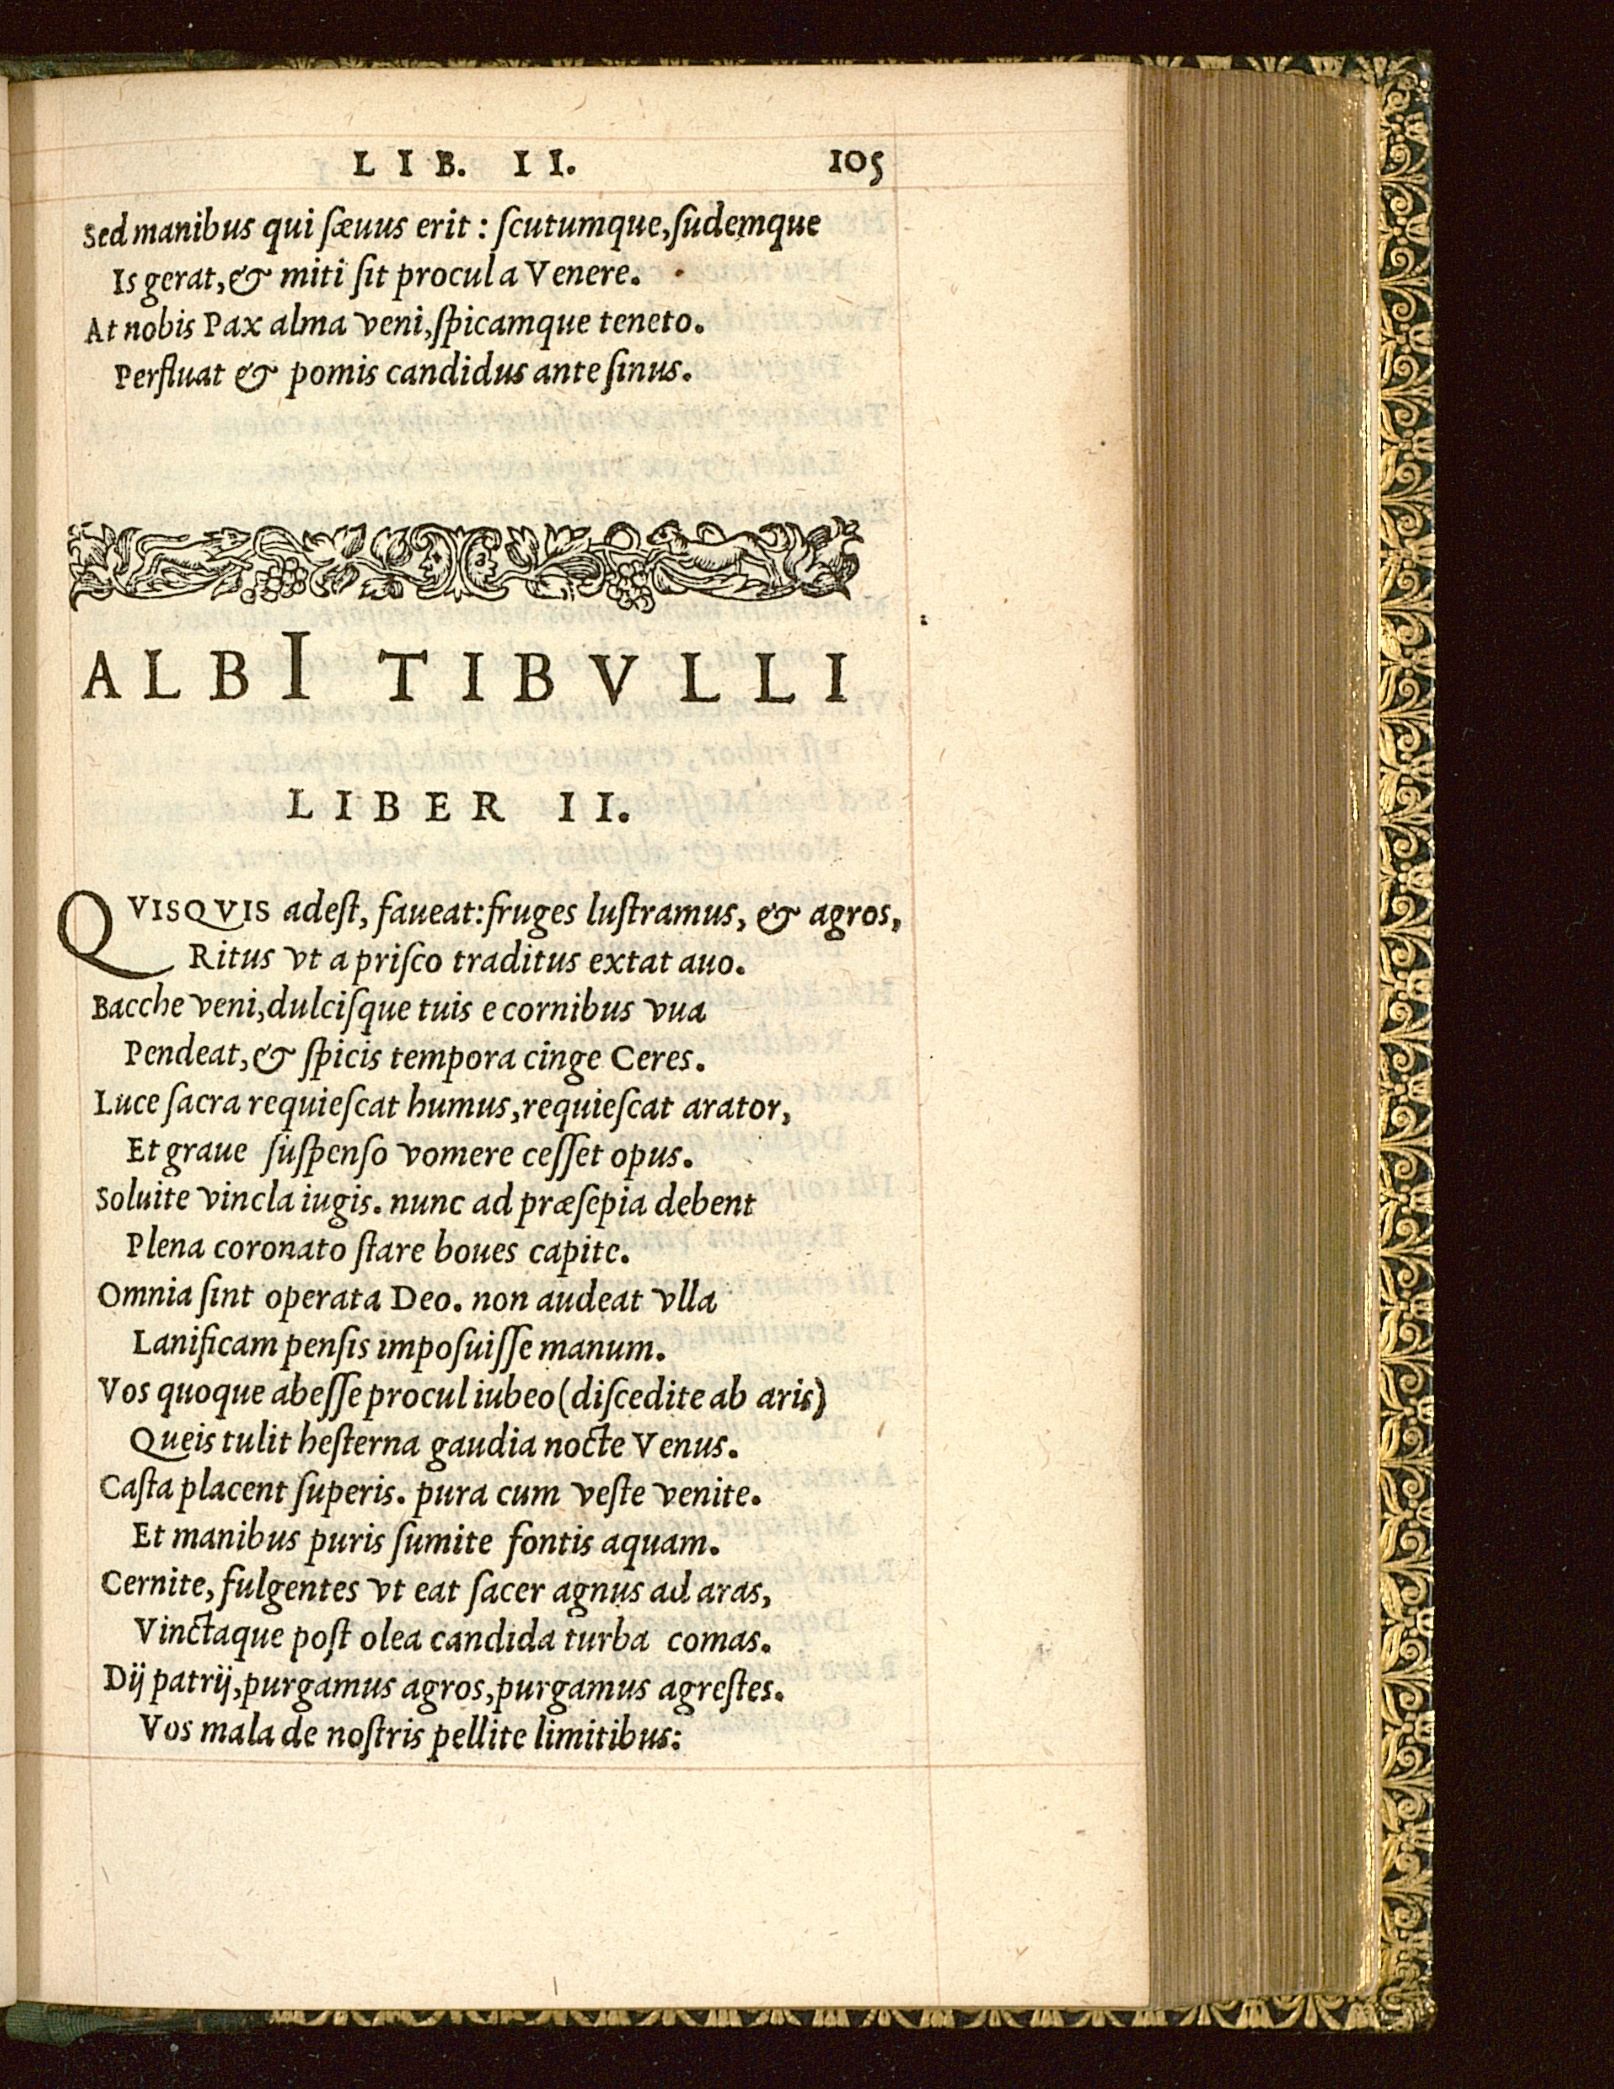 LIB. II. 105
Sed manibus qui sæuus erit: ſcutumque, ſudemque
Is gerat, & miti ſit procul a Venere.
At nobis Pax alma veni, ſpicamque teneto.
Perfluat & pomis candidus ante ſinus.
ALBI TIBVLLI
LIBER II.
QVISQVIS adeſt, faueat: fruges luſtramus, & agros,
Ritus vt a priſco traditus extat auo.
Bacche veni, dulciſque tuis e cornibus vua
Pendeat, & ſpicis tempora cinge Ceres.
Luce ſacra requieſcat humus, requieſcat arator,
Et graue ſuſpenſo vomere ceſſet opus.
Soluite vincla iugis. nunc ad præſepia debent
Plena coronato ſtare boues capite.
Omnia ſint operata Deo. non audeat vlla
Lanificam penſis impoſuiſſe manum.
Vos quoque abeſſe procul iubeo (diſcedite ab aris)
Queis tulit heſterna gaudia nocte Venus.
Caſta placent ſuperis. pura cum veſte venite.
Et manibus puris ſumite fontis aquam.
Cernite, fulgentes vt eat ſacer agnus ad aras,
Vinctaque poſt olea candida turba comas.
Dij patrij, purgamus agros, purgamus agreſtes.
Vos mala de noſtris pellite limitibus: